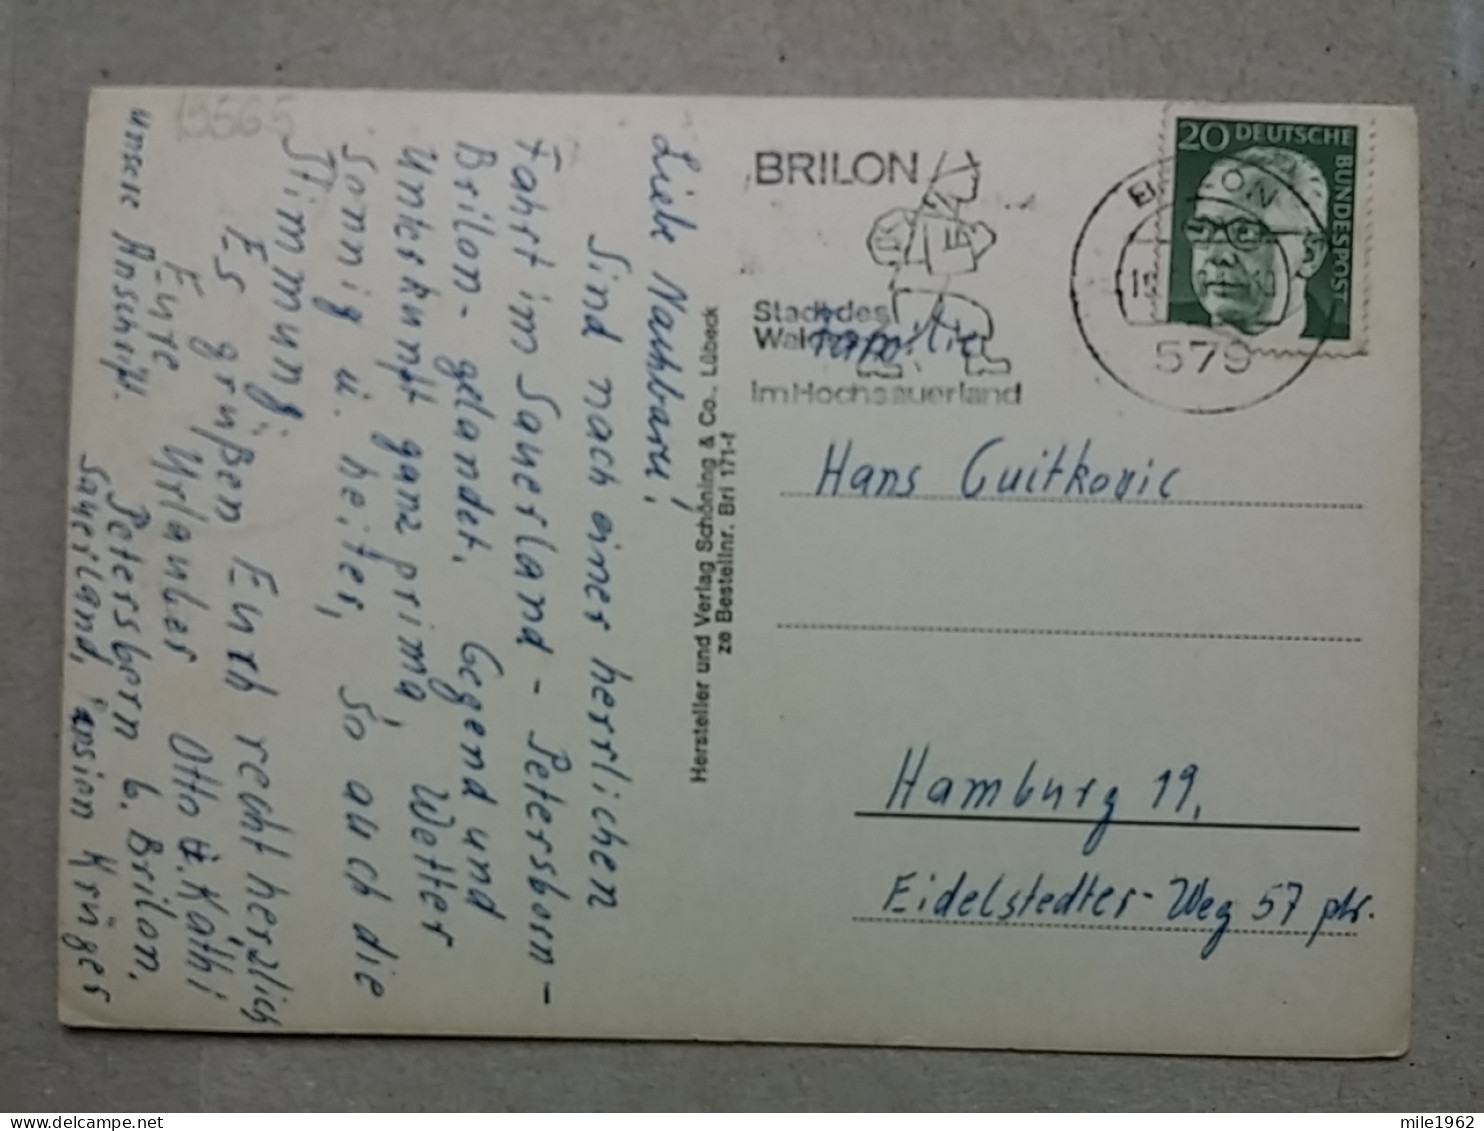 15565
Liebe Nachbarn!
Sind nach einer herrlichen
Fahrt im Sauerland - Petersborn -
Brilon - gelandet. Gegend und
Unterkunft ganz prima, Wetter
sonnig u. heiter, so auch die
Stimmung.
Es grüßen Euch recht herzlich
Eure Urlauber Otto u. Käthi
unsere Anschrift. Petersborn b. Brilon.
Sauerland, Pension Krüger
Hersteller und Verlag Schöning & Co., Lübeck
ze Bestellnr. Bri 171-f
BRILON
Stadt des
Waldes
im Hochsauerland
20 DEUTSCHE BUNDESPOST
BRILON
579
Familie
Hans Guitkovic
Hamburg 19,
Eidelstedter-Weg 57 ptr.
mile1962